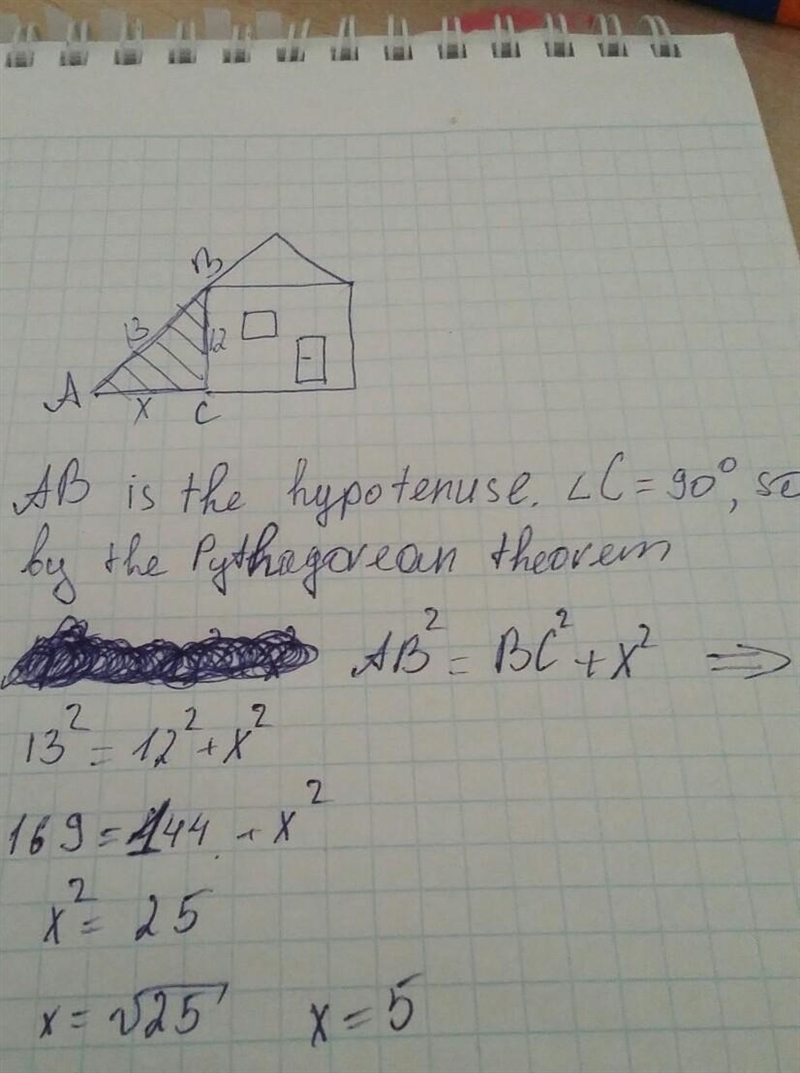 B
13
12
A
x
C
AB is the hypotenuse. ∠C = 90°, so
by the Pythagorean theorem
AB² = BC² + x² ⇒
13² = 12² + x²
169 = 144 + x²
x² = 25
x = √25 x = 5